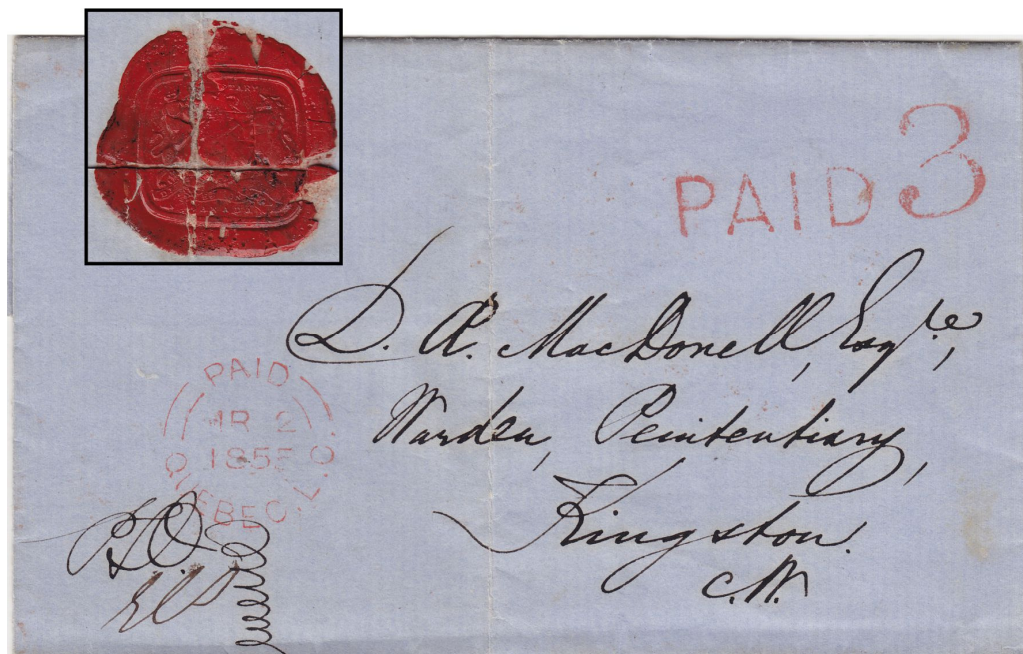 PAID 3
D. Æ. MacDonell, Esqre,
Warden, Penitentiary,
Kingston.
C.W.
PAID
MR 2
185
QUEBEC. L.C.